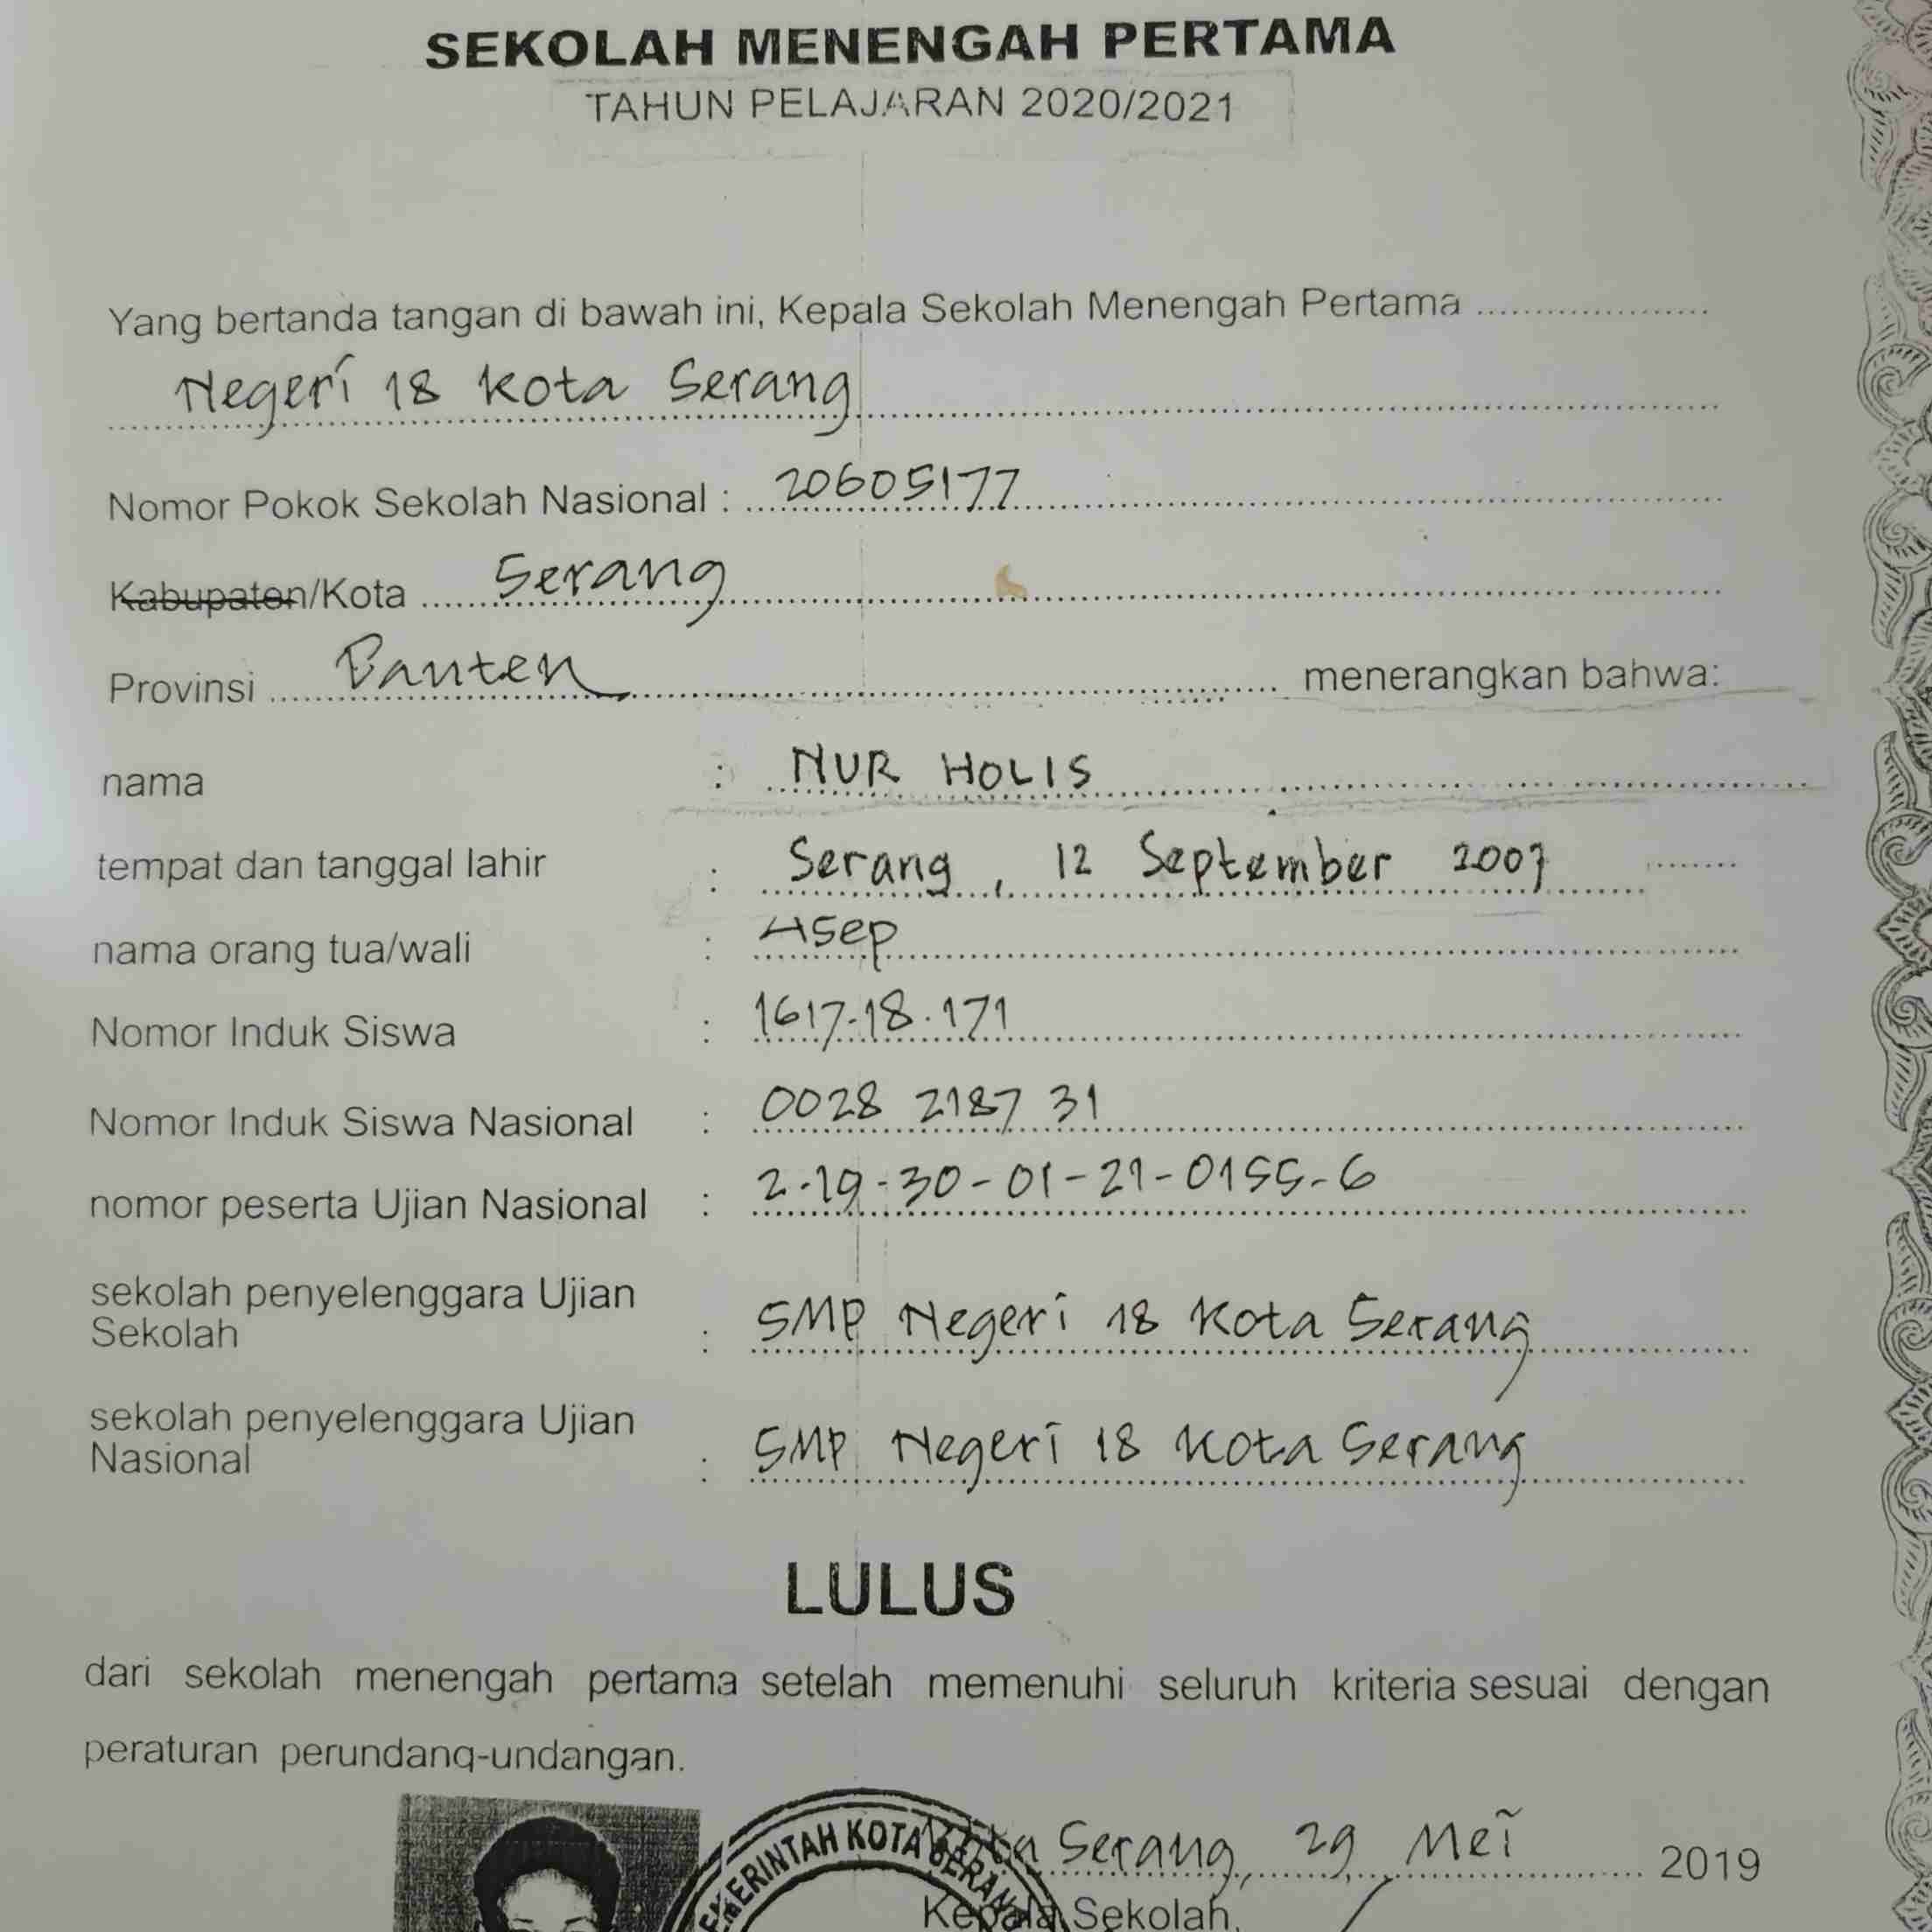 SEKOLAH MENENGAH PERTAMA
TAHUN PELAJARAN 2020/2021
Yang bertanda tangan di bawah ini, Kepala Sekolah Menengah Pertama
Negeri 18 Kota Serang
Nomor Pokok Sekolah Nasional : 20605177
Kabupaten/Kota Serang
Provinsi Banten menerangkan bahwa:
nama : NUR HOLIS
tempat dan tanggal lahir : Serang, 12 September 2007
nama orang tua/wali : Asep
Nomor Induk Siswa : 1617-18.171
Nomor Induk Siswa Nasional : 0028 2187 31
nomor peserta Ujian Nasional : 2-19-30-01-21-0155-6
sekolah penyelenggara Ujian
Sekolah : SMP Negeri 18 Kota Serang
sekolah penyelenggara Ujian
Nasional : SMP Negeri 18 Kota Serang
LULUS
dari sekolah menengah pertama setelah memenuhi seluruh kriteria sesuai dengan
peraturan perundang-undangan.
PEMERINTAH KOTA SERANG
Kota Serang, 29 Mei 2019
Kepala Sekolah,